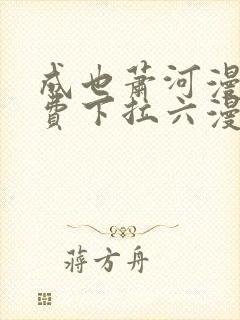 成也萧河漫
费下拉六漫
蒋方舟